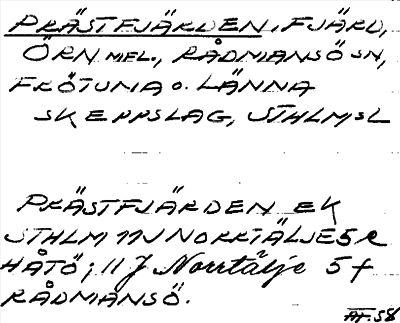 PRÄSTFJÄRDEN, FJÄRD,
ÖRN MEL., RÅDMANSÖ SN,
FRÖTUNA O. LÄNNA
SKEPPSLAG, STHLMSL
PRÄSTFJÄRDEN EK
STHLM 11J NORRTÄLJE 5 e
HÅTÖ; 11 J Norrtälje 5 f
RÅDMANSÖ.
AF. 58